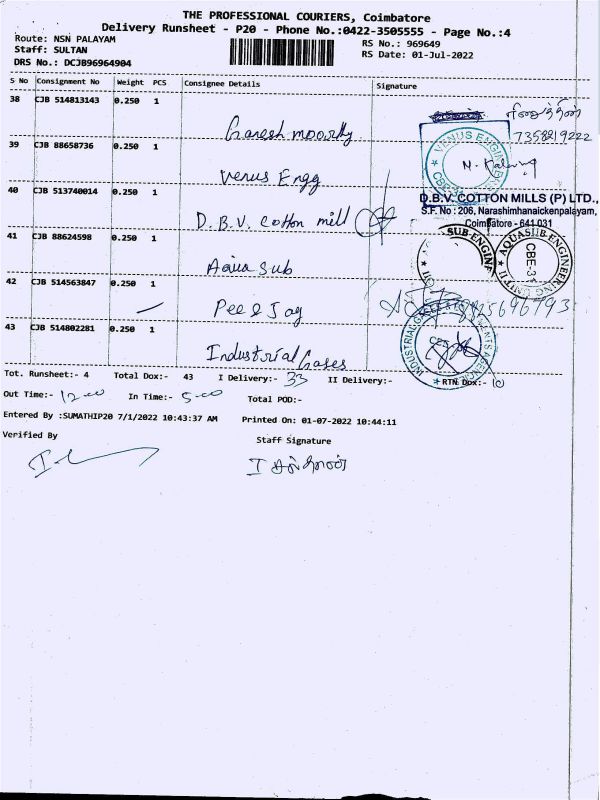 THE PROFESSIONAL COURIERS, Coimbatore
Delivery Runsheet - P20 - Phone No.:0422-3505555 - Page No.:4
Route: NSN PALAYAM
RS No.: 969649
Staff: SULTAN
RS Date: 01-Jul-2022
DRS No.: DCJB96964904
S No Consignment No Weight PCS Consignee Details Signature
38 CJB 514813143 0.250 1
Ganesh moorthy
7358219222
39 CJB 88658736 0.250 1
Venus Engg
VENUS ENGG
CBE-31
40 CJB 513740014 0.250 1
D.B.V. Cotton mill
D.B.V. COTTON MILLS (P) LTD.,
S.F. No : 206, Narashimhanaickenpalayam,
Coimbatore - 641 031
41 CJB 88624598 0.250 1
Aqua Sub
AQUASUB ENGINEERING UNIT II
CBE-31
42 CJB 514563847 0.250 1
Pee & Jay
43 CJB 514802281 0.250 1
Industrial Gases
Tot. Runsheet:- 4 Total Dox:- 43 I Delivery:- 33 II Delivery:- RTN Dox:- 10
Out Time:- 12.00 In Time:- 5.00 Total POD:-
Entered By :SUMATHIP20 7/1/2022 10:43:37 AM Printed On: 01-07-2022 10:44:11
Verified By
Staff Signature